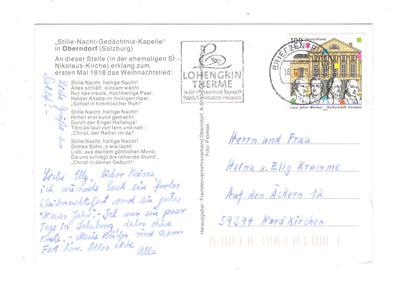 „Stille-Nacht-Gedächtnis-Kapelle"
in Oberndorf (Salzburg)
An dieser Stelle (in der ehemaligen St.
Nikolaus-Kirche) erklang zum
ersten Mal 1818 das Weihnachtslied:
Stille Nacht, heilige Nacht!
Alles schläft, einsam wacht
Nur das traute, hochheilige Paar.
Holder Knabe im lockigen Haar,
„Schlaf in himmlischer Ruh"
Stille Nacht, heilige Nacht!
Hirten erst kund gemacht
Durch der Engel Halleluja!
Tönt es laut von fern und nah:
„Christ, der Retter ist da!"
Stille Nacht, heilige Nacht!
Gottes Sohn, o wie lacht
Lieb' aus deinem göttlichen Mund,
Da uns schlägt die rettende Stund'
„Christ in deiner Geburt!"
Liebe Elly, lieber Heinz
ich wünsche Euch ein frohes
Weihnachtsfest und ein gutes
"Neues Jahr". Ich war ein paar
Tage in Salzburg, daher diese
Karte.
Alles Liebe
Herausgeber: Fremdenverkehrsverband Oberndorf
LOHENGRIN
THERME
BRIEFZENTRUM
100
Deutschland
Herrn und Frau
Heinz u. Elly Kramme
Auf den Äckern 12
59394 Nordkirchen